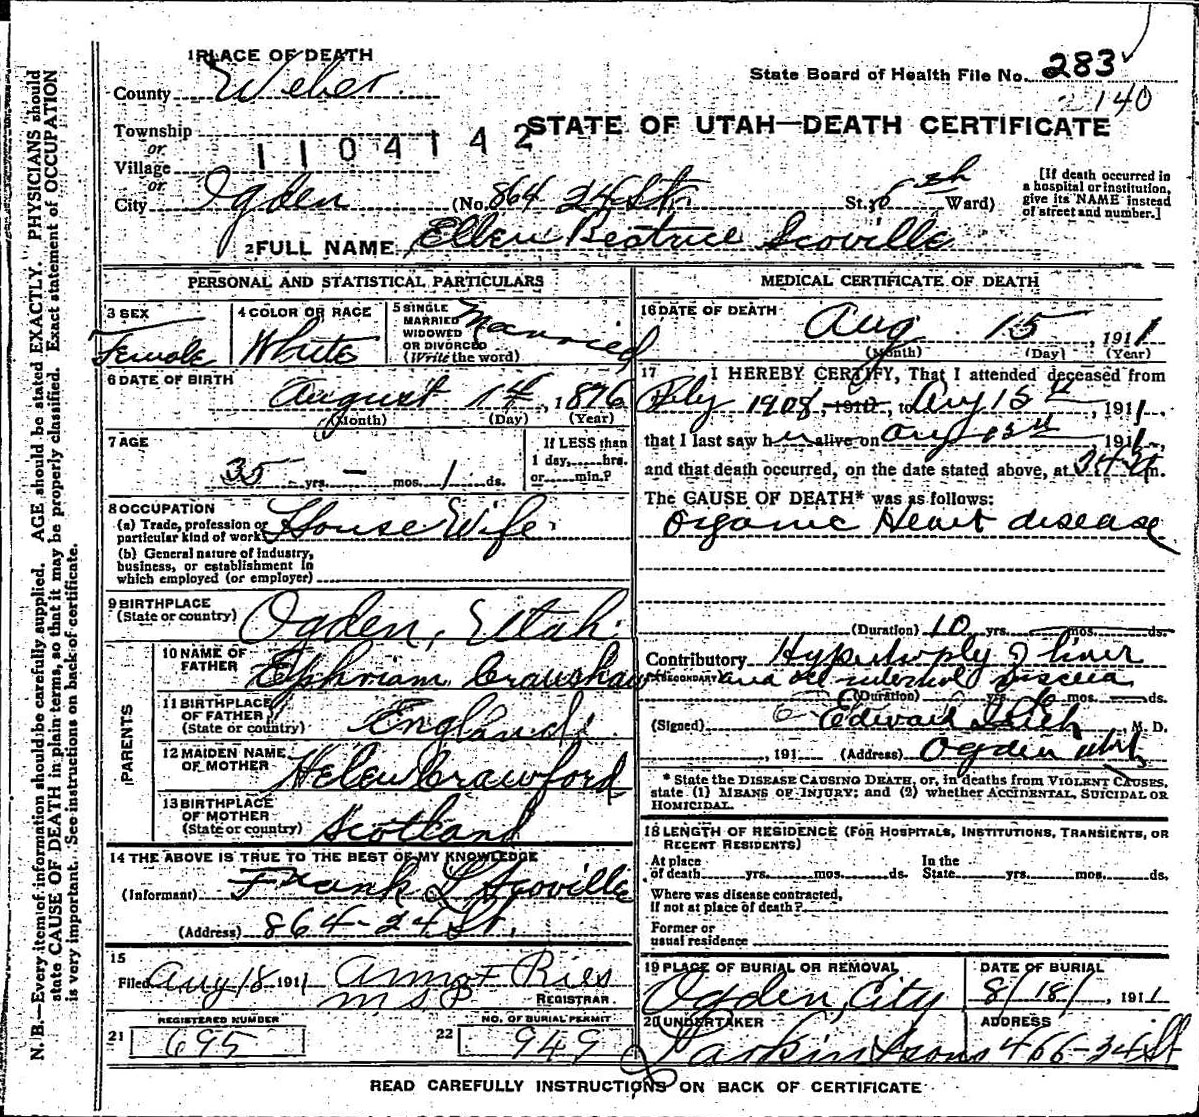 1 PLACE OF DEATH
State Board of Health File No. 283
2140
County Weber
STATE OF UTAH—DEATH CERTIFICATE
Township
or
Village
1104142
or
City Ogden (No. 864 24 St. St. Ward)
[If death occurred in
a hospital or institution,
give its NAME instead
of street and number.]
2 FULL NAME Ellen Beatrice Scoville
PERSONAL AND STATISTICAL PARTICULARS
3 SEX
Female
4 COLOR OR RACE
White
5 SINGLE
MARRIED
WIDOWED
OR DIVORCED
(Write the word)
Married
6 DATE OF BIRTH
August 1st, 1876
(Month) (Day) (Year)
7 AGE
35 yrs. — mos. 1 ds.
If LESS than
1 day, hrs.
or min.?
8 OCCUPATION
(a) Trade, profession or
particular kind of work House Wife
(b) General nature of industry,
business, or establishment in
which employed (or employer)
9 BIRTHPLACE
(State or country) Ogden, Utah.
PARENTS
10 NAME OF
FATHER Ephriam Crawshaw
11 BIRTHPLACE
OF FATHER
(State or country) England.
12 MAIDEN NAME
OF MOTHER Helen Crawford
13 BIRTHPLACE
OF MOTHER
(State or country) Scotland
14 THE ABOVE IS TRUE TO THE BEST OF MY KNOWLEDGE
(Informant) Frank L Scoville
(Address) 864-24 St.
15
Filed Aug 18 1911
REGISTRAR.
REGISTERED NUMBER
21 695
NO. OF BURIAL PERMIT
22 949
MEDICAL CERTIFICATE OF DEATH
16 DATE OF DEATH
Aug 15, 1911
(Month) (Day) (Year)
17 I HEREBY CERTIFY, That I attended deceased from
1908, 1910, to Aug 15th, 1911,
that I last saw her alive on Aug 1911,
and that death occurred, on the date stated above, at m.
The CAUSE OF DEATH* was as follows:
Organic Heart disease
(Duration) 10 yrs. mos. ds.
Contributory Hypertrophy of liver
(SECONDARY) and all internal viscera
(Duration) yrs. 6 mos. ds.
(Signed) Edward M. D.
, 191 (Address) Ogden Utah
* State the DISEASE CAUSING DEATH, or, in deaths from VIOLENT CAUSES,
state (1) MEANS OF INJURY; and (2) whether ACCIDENTAL, SUICIDAL OR
HOMICIDAL.
18 LENGTH OF RESIDENCE (FOR HOSPITALS, INSTITUTIONS, TRANSIENTS, OR
RECENT RESIDENTS)
At place
of death yrs. mos. ds.
In the
State yrs. mos. ds.
Where was disease contracted,
if not at place of death?
Former or
usual residence
19 PLACE OF BURIAL OR REMOVAL
Ogden City
DATE OF BURIAL
8/18/, 1911
20 UNDERTAKER
Larkin & sons
ADDRESS
466-24 St
READ CAREFULLY INSTRUCTIONS ON BACK OF CERTIFICATE
N. B.—Every item of information should be carefully supplied. AGE should be stated EXACTLY. PHYSICIANS should
state CAUSE OF DEATH in plain terms, so that it may be properly classified. Exact statement of OCCUPATION
is very important. See instructions on back of certificate.